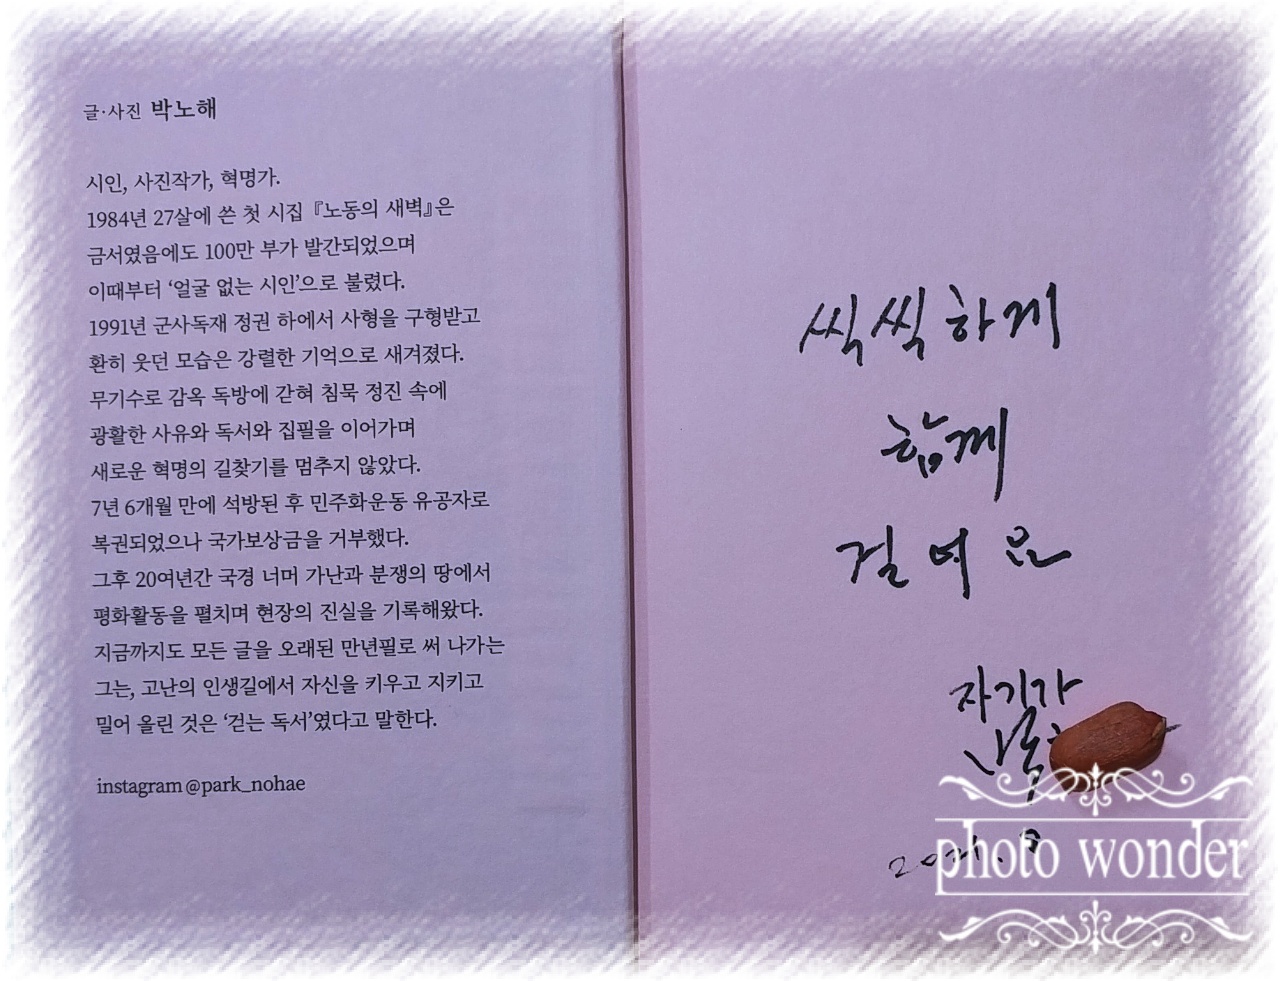 글·사진 박노해
시인, 사진작가, 혁명가.
1984년 27살에 쓴 첫 시집 『노동의 새벽』은
금서였음에도 100만 부가 발간되었으며
이때부터 ‘얼굴 없는 시인’으로 불렸다.
1991년 군사독재 정권 하에서 사형을 구형받고
환히 웃던 모습은 강렬한 기억으로 새겨졌다.
무기수로 감옥 독방에 갇혀 침묵 정진 속에
광활한 사유와 독서와 집필을 이어가며
새로운 혁명의 길찾기를 멈추지 않았다.
7년 6개월 만에 석방된 후 민주화운동 유공자로
복권되었으나 국가보상금을 거부했다.
그후 20여년간 국경 너머 가난과 분쟁의 땅에서
평화활동을 펼치며 현장의 진실을 기록해왔다.
지금까지도 모든 글을 오래된 만년필로 써 나가는
그는, 고난의 인생길에서 자신을 키우고 지키고
밀어 올린 것은 ‘걷는 독서’였다고 말한다.
instagram@park_nohae
씩씩하게
함께
걸어요
자기가
photo wonder